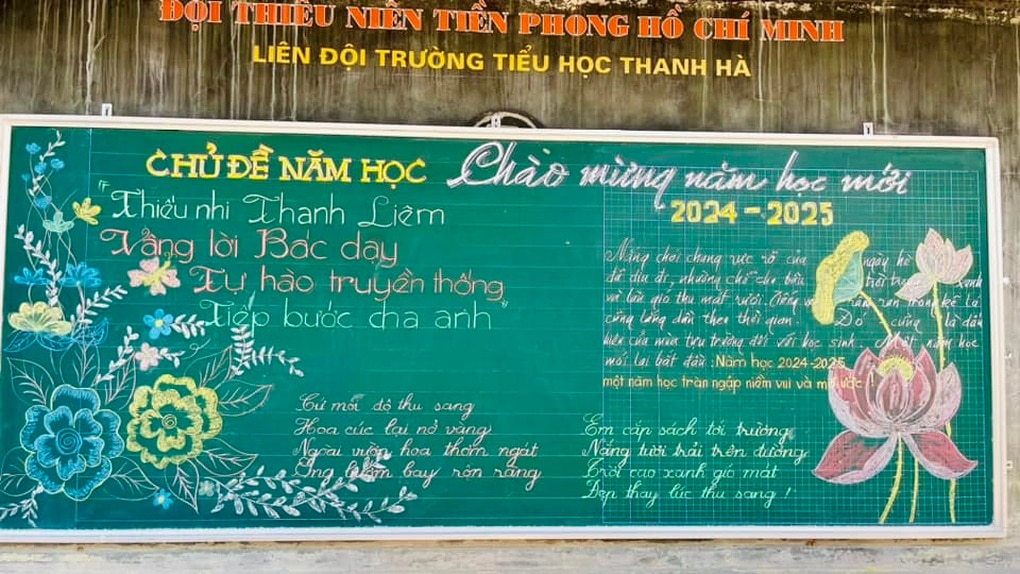 ĐỘI THIẾU NIÊN TIỀN PHONG HỒ CHÍ MINH
LIÊN ĐỘI TRƯỜNG TIỂU HỌC THANH HÀ
CHỦ ĐỀ NĂM HỌC
"Thiếu nhi Thanh Liêm
Vâng lời Bác dạy
Tự hào truyền thống
Tiếp bước cha anh"
Chào mừng năm học mới
2024 - 2025
Nắng chói chang rực rỡ của ngày hè
đã dịu đi, nhường chỗ cho bầu trời trong xanh
và làn gió thu mát rượi. Tiếng ve râm ran trong kẽ lá
cũng lắng dần theo thời gian. Đó cũng là dấu
hiệu của mùa tựu trường đối với học sinh. Một năm học
mới lại bắt đầu: Năm học 2024-2025
một năm học tràn ngập niềm vui và mơ ước!
Cứ mỗi độ thu sang
Hoa cúc lại nở vàng
Ngoài vườn hoa thơm ngát
Ong bướm bay rộn ràng
Em cắp sách tới trường
Nắng tươi trải trên đường
Trời cao xanh gió mát
Đẹp thay lúc thu sang!